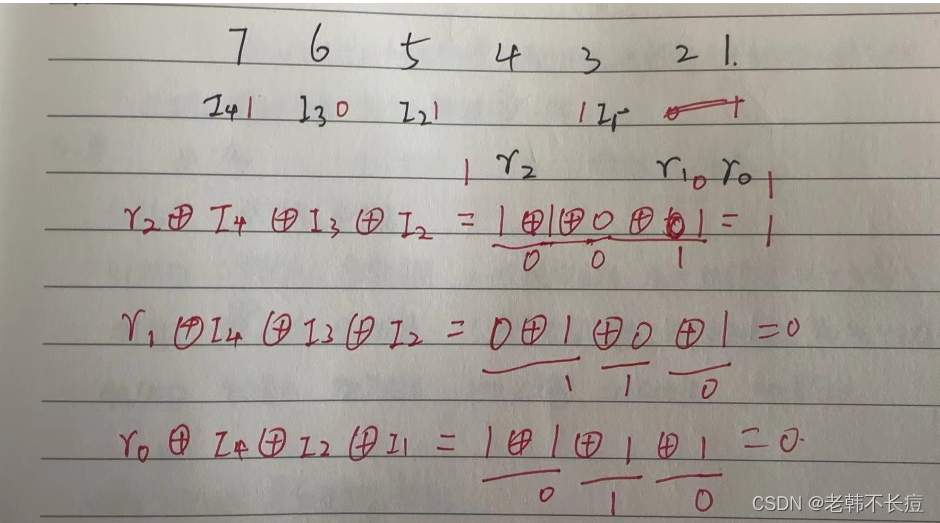 7 6 5 4 3 2 1.
I₄ 1 I₃ 0 I₂ 1 1 I₁
1 r₂ r₁ 0 r₀ 1
r₂ ⊕ I₄ ⊕ I₃ ⊕ I₂ = 1 ⊕ 1 ⊕ 0 ⊕ 1 = 1
0 0 1
r₁ ⊕ I₄ ⊕ I₃ ⊕ I₂ = 0 ⊕ 1 ⊕ 0 ⊕ 1 = 0
1 1 0
r₀ ⊕ I₄ ⊕ I₂ ⊕ I₁ = 1 ⊕ 1 ⊕ 1 ⊕ 1 = 0.
0 1 0
CSDN @老韩不长痘